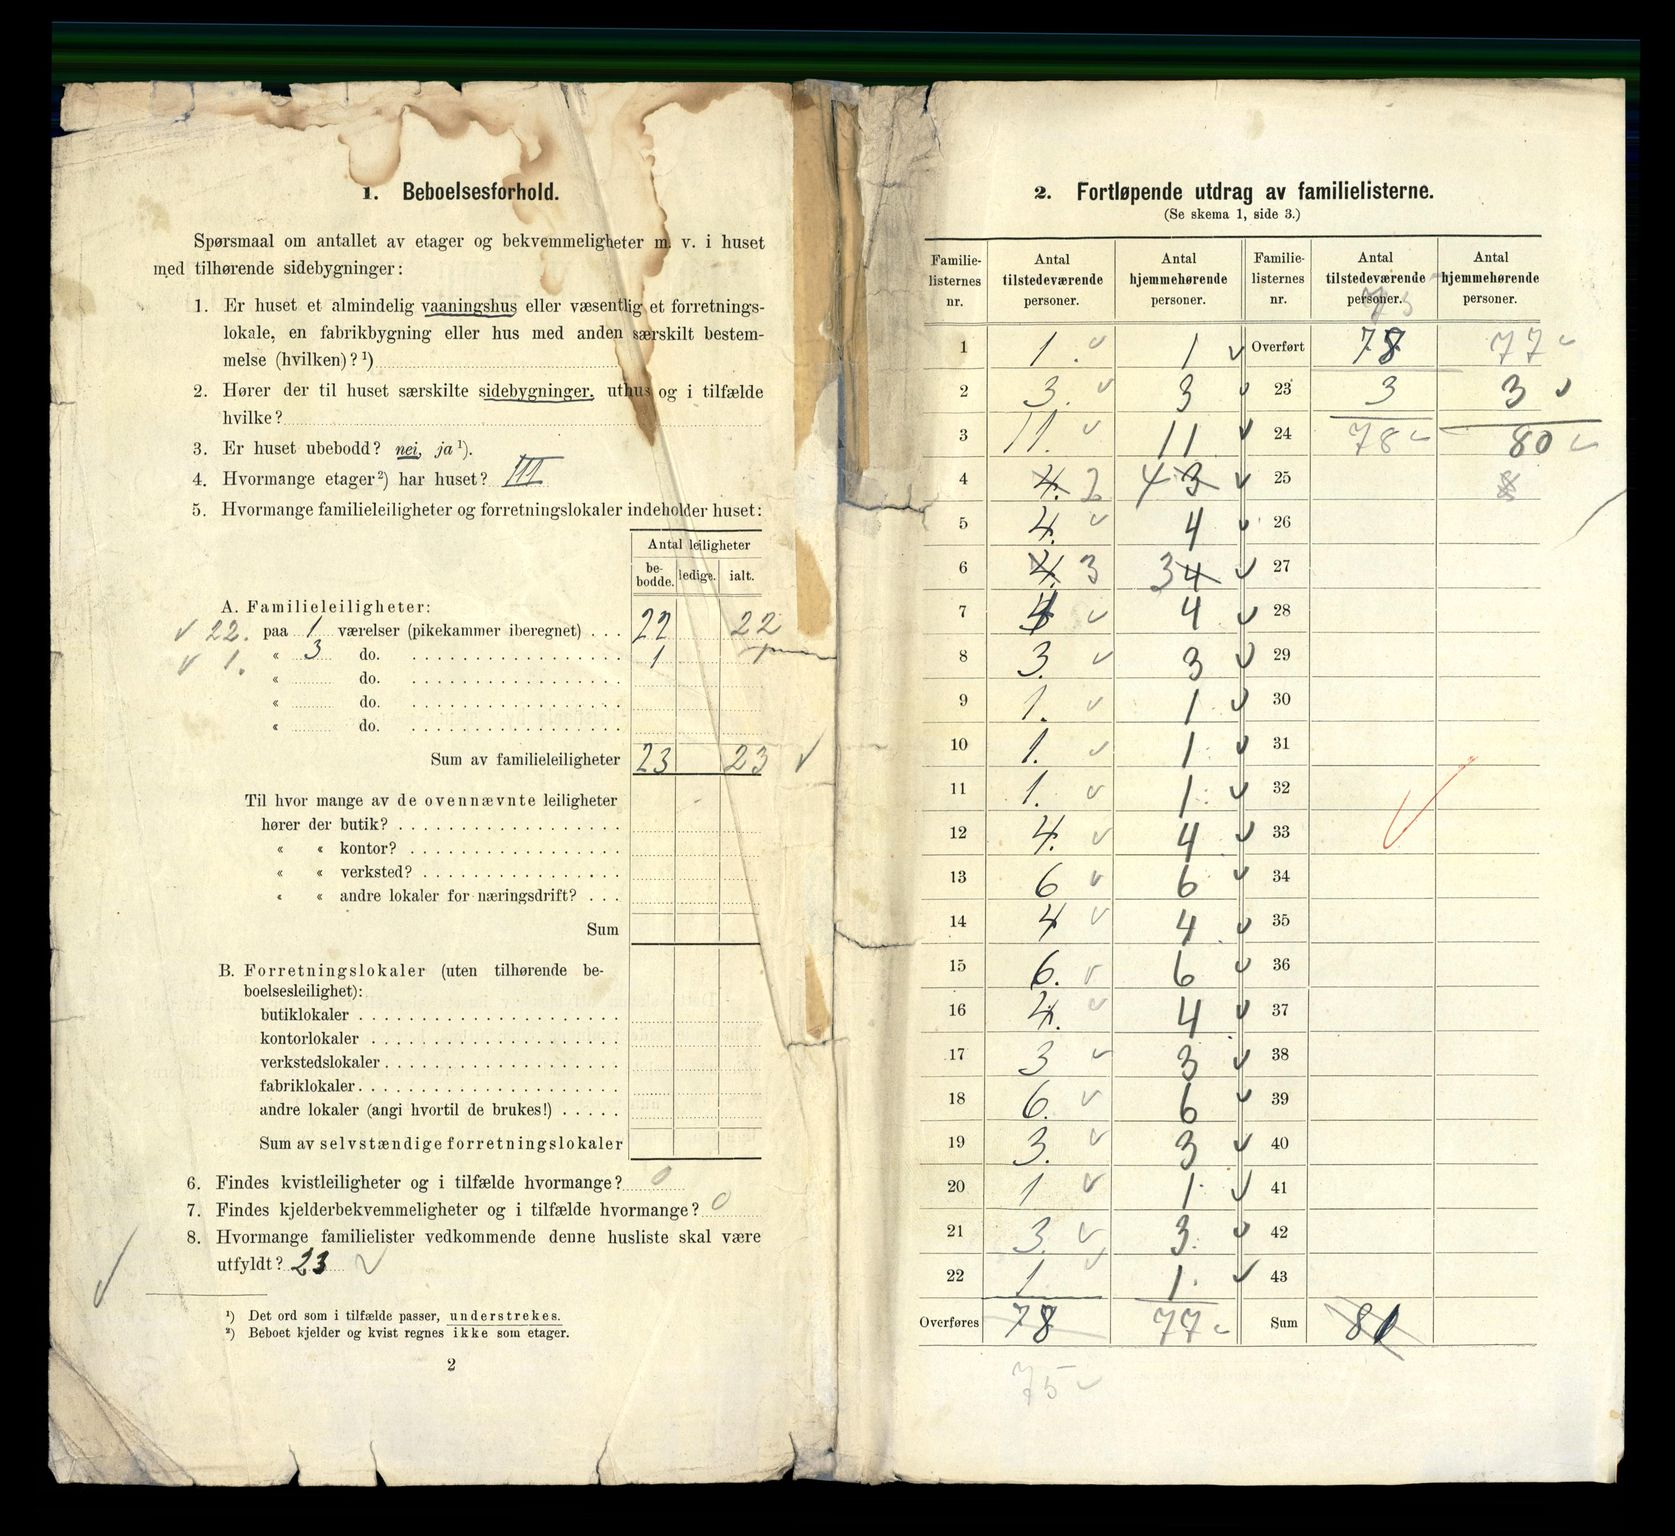 1. Beboelsesforhold.
Spørsmaal om antallet av etager og bekvemmeligheter m. v. i huset
med tilhørende sidebygninger:
1. Er huset et almindelig vaaningshus eller væsentlig et forretnings-
lokale, en fabrikbygning eller hus med anden særskilt bestem-
melse (hvilken)? ¹)
2. Hører der til huset særskilte sidebygninger, uthus og i tilfælde
hvilke?
3. Er huset ubebodd? nei, ja ¹).
4. Hvormange etager ²) har huset? III
5. Hvormange familieleiligheter og forretningslokaler indeholder huset:
Antal leiligheter
be-
bodde. ledige. ialt.
A. Familieleiligheter:
✓ 22. paa 1 værelser (pikekammer iberegnet) . . . 22 22
✓ 1. « 3 do. 1 1
« do.
« do.
« do.
Sum av familieleiligheter 23 23 ✓
Til hvor mange av de ovennævnte leiligheter
hører der butik?
« « kontor?
« « verksted?
« « andre lokaler for næringsdrift? . . .
Sum
B. Forretningslokaler (uten tilhørende be-
boelsesleilighet):
butiklokaler
kontorlokaler
verkstedslokaler
fabriklokaler
andre lokaler (angi hvortil de brukes!) . . . . .
Sum av selvstændige forretningslokaler
6. Findes kvistleiligheter og i tilfælde hvormange? 0
7. Findes kjelderbekvemmeligheter og i tilfælde hvormange? 0
8. Hvormange familielister vedkommende denne husliste skal være
utfyldt? 23 ✓
¹) Det ord som i tilfælde passer, understrekes.
²) Beboet kjelder og kvist regnes ikke som etager.
2
2. Fortløpende utdrag av familielisterne.
(Se skema 1, side 3.)
Familie- Antal Antal Familie- Antal Antal
listernes tilstedeværende hjemmehørende listernes tilstedeværende hjemmehørende
nr. personer. personer. nr. personer. personer.
75
1 1. ✓ 1 ✓ Overført 78 77 ✓
2 3. ✓ 3 ✓ 23 3 3 ✓
3 11. ✓ 11 ✓ 24 78 ✓ 80 ✓
4 4. 2 4 3 ✓ 25
5 4. ✓ 4 ✓ 26
6 4. 3 3 4 ✓ 27
7 4 ✓ 4 ✓ 28
8 3. ✓ 3 ✓ 29
9 1. ✓ 1 ✓ 30
10 1. ✓ 1 ✓ 31
11 1. ✓ 1 ✓ 32
12 4. ✓ 4 ✓ 33
13 6 ✓ 6 ✓ 34
14 4 ✓ 4 ✓ 35
15 6. ✓ 6 ✓ 36
16 4. ✓ 4 ✓ 37
17 3 ✓ 3 ✓ 38
18 6. ✓ 6 ✓ 39
19 3. ✓ 3 ✓ 40
20 1 ✓ 1 ✓ 41
21 3. ✓ 3. ✓ 42
22 1 ✓ 1. ✓ 43
Overføres 78 77 ✓ Sum 81
75 ✓